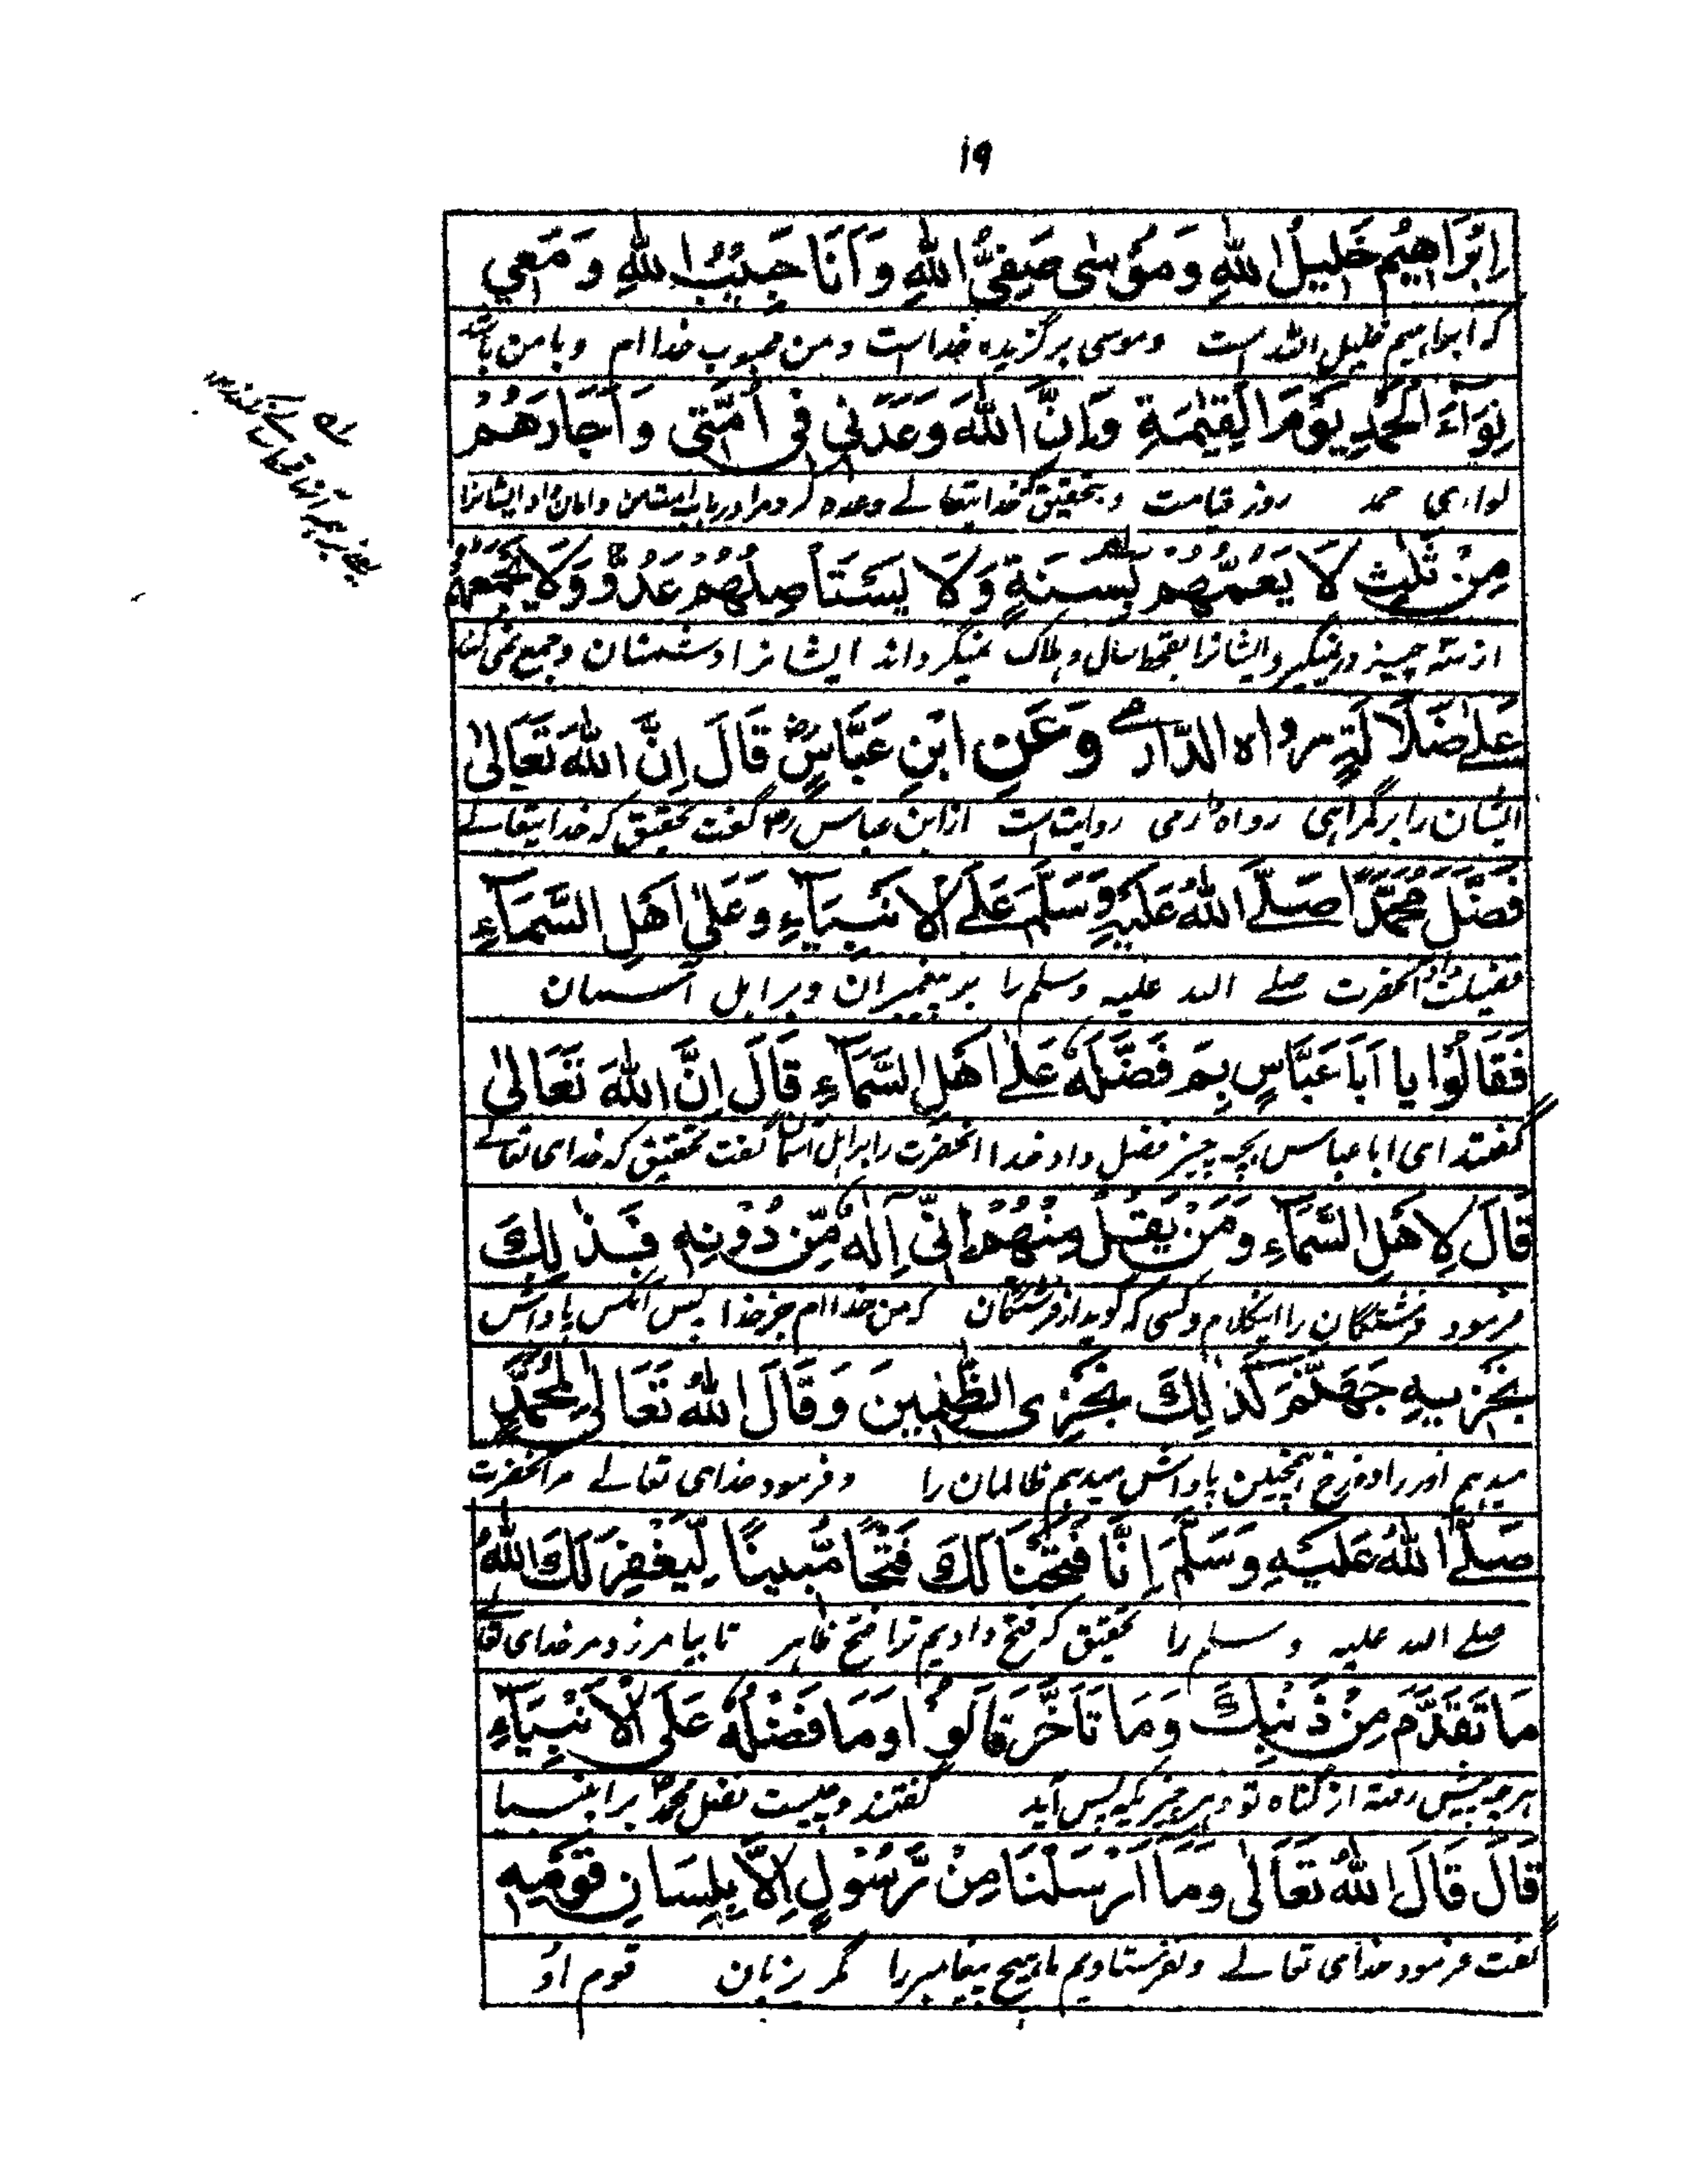 ١٩
اِبْرَاهِيْمُ خَلِيْلُ اللهِ وَمُوْسٰى صَفِيُّ اللهِ وَاَنَا حَبِيْبُ اللهِ وَمَعِي
که ابراهیم خلیل الله است وموسی برگزیده خداست ومن محبوب خدا ام وبا من باشد
لِوَآءُ الْحَمْدِ يَوْمَ الْقِيٰمَةِ وَاِنَّ اللهَ وَعَدَنِي فِي اُمَّتِي وَاَجَارَهُمْ
لواءی حمد روز قیامت وبتحقیق خدایتعالے وعده کرد مرا در باب امت من وامان داد ایشانرا
مِنْ ثَلٰثٍ لَا يَعُمُّهُمْ بِسَنَةٍ وَلَا يَسْتَأْصِلُهُمْ عَدُوٌّ وَلَا يَجْمَعُهُمْ
از سه چیز در نمیگیرد ایشانرا بقحط سال وهلاک نمیگرداند ایشانرا دشمنان وجمع نمی کند
عَلٰى ضَلَالَةٍ رواه الدّارمے وَعَنِ ابْنِ عَبَّاسٍ رض قَالَ اِنَّ اللهَ تَعَالٰى
ایشان را بر گمراهی رواه دارمی روایت است از ابن عباس رض گفت تحقیق که خدایتعالے
فَضَّلَ مُحَمَّدًا صَلَّے اللهُ عَلَيْهِ وَسَلَّمَ عَلَے الْاَنْبِيَآءِ وَعَلٰى اَهْلِ السَّمَآءِ
فضیلت داد آنحضرت صلے الله علیه وسلم را بر پیغمبران وبر اهل آسمان
فَقَالُوْا يا اَبَا عَبَّاسٍ بِمَ فَضَّلَهٗ عَلٰے اَهْلِ السَّمَآءِ قَالَ اِنَّ اللهَ تَعَالٰى
گفتند ای ابا عباس بچه چیز فضل داد خدا آنحضرت را بر اهل آسمان گفت تحقیق که خدای تعالے
قَالَ لِاَهْلِ السَّمَآءِ وَمَنْ يَقُلْ مِنْهُمْ اِنِّيْ اِلٰهٌ مِّنْ دُوْنِهٖ فَذٰلِكَ
فرمود فرشتگان را اینکلام وکسی که گوید از فرشتگان که من خدا ام جز خدا پس آنکس پاداش
نَجْزِيْهِ جَهَنَّمَ كَذٰلِكَ نَجْزِي الظّٰلِمِيْنَ وَقَالَ اللهُ تَعَالٰى لِمُحَمَّدٍ
میدهیم اورا دوزخ همچنین پاداش میدهیم ظالمان را وفرمود خدای تعالے مر آنحضرت
صَلَّے اللهُ عَلَيْهِ وَسَلَّمَ اِنَّا فَتَحْنَا لَكَ فَتْحًا مُّبِيْنًا لِّيَغْفِرَ لَكَ اللهُ
صلے الله علیه وسلم را تحقیق که فتح دادیم ترا فتح ظاهر تا بیامرزد مر خدای تعالے
مَا تَقَدَّمَ مِنْ ذَنْبِكَ وَمَا تَاَخَّرَ قَالُوْا وَمَا فَضْلُهٗ عَلَى الْاَنْبِيَآءِ
هرچه پیش رفته از گناه تو وهر چیزیکه پس آید گفتند وچیست فضل محمد بر انبیا
قَالَ قَالَ اللهُ تَعَالٰى وَمَا اَرْسَلْنَا مِنْ رَّسُوْلٍ اِلَّا بِلِسَانِ قَوْمِهٖ
گفت فرمود خدای تعالے ونفرستادیم ما هیچ پیغامبر را مگر بزبان قوم او